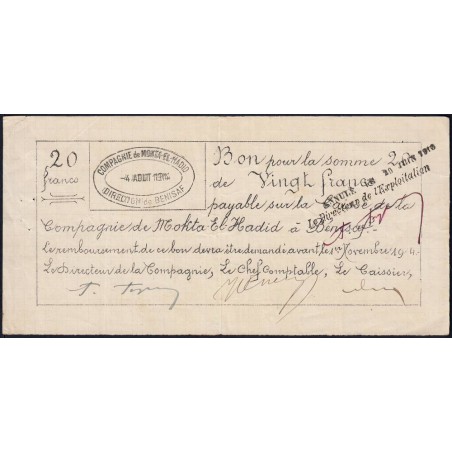 20
francs
COMPAGNIE de MOKTA-EL-HADID
-4 AOUT 1914
DIRECTION de BENISAF
Bon pour la somme
de Vingt francs
payable sur la Caisse de la
Compagnie de Mokta El Hadid à Benisaf.
Le remboursement de ce bon devra être demandé avant le 1er Novembre 191
Le Directeur de la Compagnie, Le Chef Comptable, Le Caissier,
ANNULÉ LE 20 JUIN 1918
Le Directeur de l'Exploitation